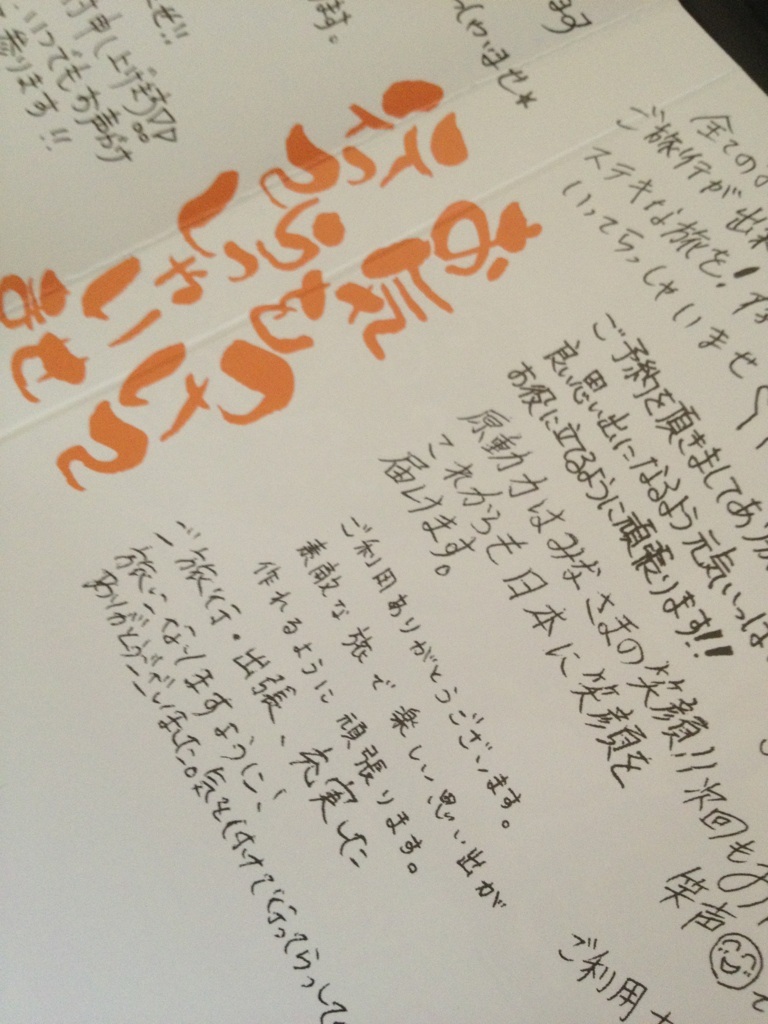 ぜ!!
申し上げます♡♡
いつでもお声がけ
参ります!!
ます。
ませ*
お気をつけて
行ってらっしゃいませ
全ての
ご旅行が出来
ステキな旅を!
いってらっしゃいませ
ご予約を頂きましてあり
良い思い出になるよう元気いっぱ
お役に立てるように頑張ります!!
原動力はみなさまの笑顔!! 次回も
これからも日本に笑顔を
届けます。
笑声
ご利用ありがとうございます。
素敵な旅で楽しい思い出が
作れるように頑張ります。
ご旅行・出張、充実した
旅になりますように、
ありがとうございました。気を付けて行ってらっしゃ
ご利用